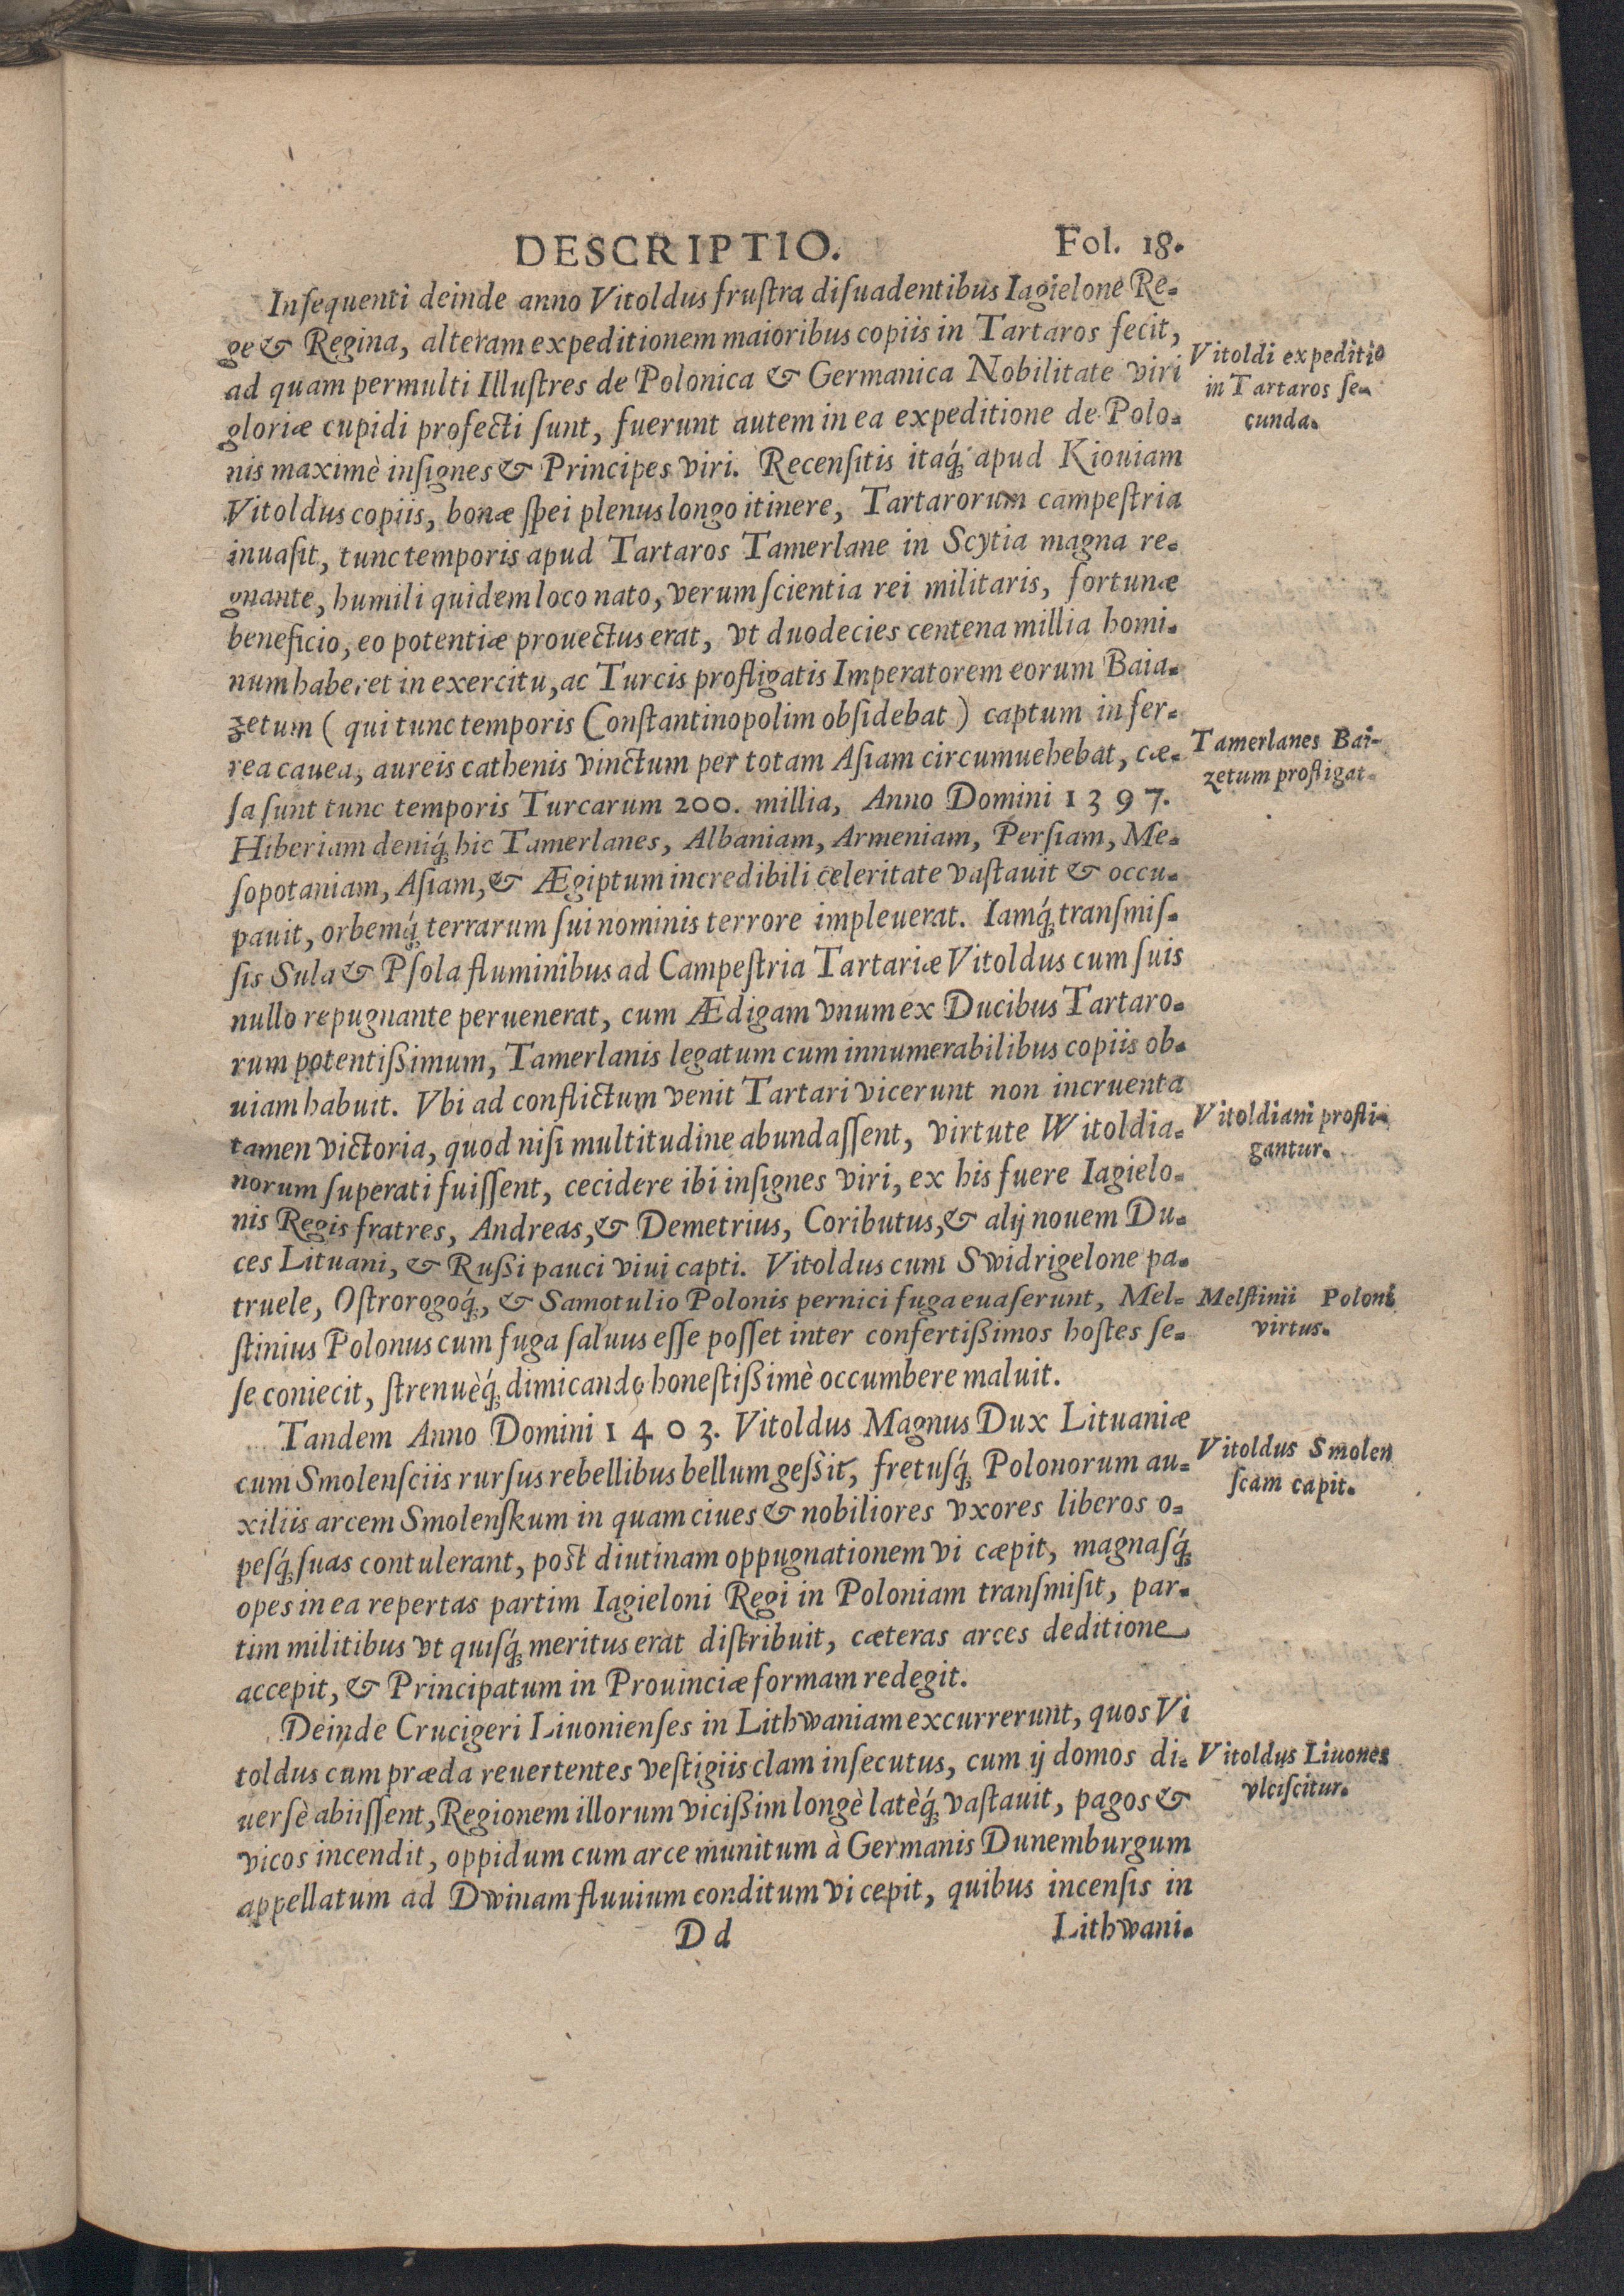 DESCRIPTIO. Fol. 18.
Inſequenti deinde anno Vitoldus fruſtra diſuadentibus Iagielone Re-
ge & Regina, alteram expeditionem maioribus copiis in Tartaros fecit,
ad quam permulti Illuſtres de Polonica & Germanica Nobilitate viri
gloriæ cupidi profecti ſunt, fuerunt autem in ea expeditione de Polo-
nis maximè inſignes & Principes viri. Recenſitis itaq́; apud Kiouiam
Vitoldus copiis, bonæ ſpei plenus longo itinere, Tartarorum campeſtria
inuaſit, tunc temporis apud Tartaros Tamerlane in Scytia magna re-
gnante, humili quidem loco nato, verum ſcientia rei militaris, fortunæ
beneficio, eo potentiæ prouectus erat, vt duodecies centena millia homi-
num haberet in exercitu, ac Turcis profligatis Imperatorem eorum Baia-
zetum ( qui tunc temporis Conſtantinopolim obſidebat ) captum in fer-
rea cauea, aureis cathenis vinctum per totam Aſiam circumuehebat, cæ-
ſa ſunt tunc temporis Turcarum 200. millia, Anno Domini 1397.
Hiberiam deniq́; hic Tamerlanes, Albaniam, Armeniam, Perſiam, Me-
ſopotaniam, Aſiam, & Ægiptum incredibili celeritate vaſtauit & occu-
pauit, orbemq́; terrarum ſui nominis terrore impleuerat. Iamq́; tranſmiſ-
ſis Sula & Pſola fluminibus ad Campeſtria Tartariæ Vitoldus cum ſuis
nullo repugnante peruenerat, cum Ædigam vnum ex Ducibus Tartaro-
rum potentißimum, Tamerlanis legatum cum innumerabilibus copiis ob-
uiam habuit. Vbi ad conflictum venit Tartari vicerunt non incruenta
tamen victoria, quod niſi multitudine abundaſſent, virtute Witoldia-
norum ſuperati fuiſſent, cecidere ibi inſignes viri, ex his fuere Iagielo-
nis Regis fratres, Andreas, & Demetrius, Coributus, & alij nouem Du-
ces Lituani, & Rußi pauci viui capti. Vitoldus cum Swidrigelone pa-
truele, Oſtrorogoq́;, & Samotulio Polonis pernici fuga euaſerunt, Mel-
ſtinius Polonus cum fuga ſaluus eſſe poſſet inter confertißimos hoſtes ſe-
ſe coniecit, ſtrenuèq́; dimicando honeſtißimè occumbere maluit.
Tandem Anno Domini 1403. Vitoldus Magnus Dux Lituaniæ
cum Smolenſciis rurſus rebellibus bellum geſsit, fretuſq́; Polonorum au-
xiliis arcem Smolenſkum in quam ciues & nobiliores vxores liberos o-
peſq́; ſuas contulerant, poſt diutinam oppugnationem vi cæpit, magnaſq́;
opes in ea repertas partim Iagieloni Regi in Poloniam tranſmiſit, par-
tim militibus vt quiſq́; meritus erat diſtribuit, cæteras arces deditione
accepit, & Principatum in Prouinciæ formam redegit.
Deinde Crucigeri Liuonienſes in Lithwaniam excurrerunt, quos Vi
toldus cum præda reuertentes veſtigiis clam inſecutus, cum ij domos di-
uerſè abiiſſent, Regionem illorum vicißim longè latèq́; vaſtauit, pagos &
vicos incendit, oppidum cum arce munitum à Germanis Dunemburgum
appellatum ad Dwinam fluuium conditum vi cepit, quibus incenſis in
Dd Lithwani-
Vitoldi expeditio
in Tartaros ſe-
cunda.
Tamerlanes Bai-
zetum profligat.
Vitoldiani profli-
gantur.
Melſtinii Poloni
virtus.
Vitoldus Smolen
ſcam capit.
Vitoldus Liuones
vlciſcitur.